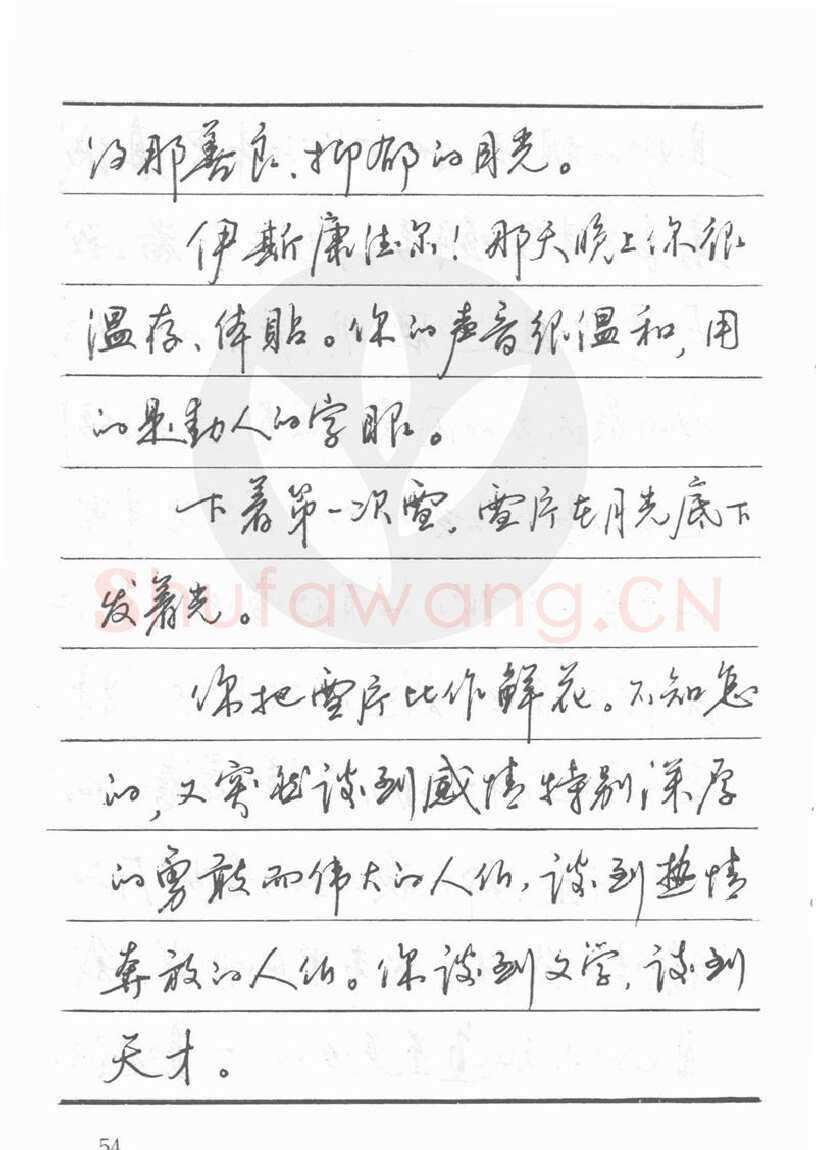 没那善良、抑郁的目光。
伊斯康德尔！那天晚上你很
温存、体貼。你的声音很温和，用
的是动人的字眼。
下着第一次雪。雪片在月光底下
发着光。
Shufawang.CN
你把雪片比作鲜花。不知怎
的，又突然谈到感情特别深厚
的勇敢而伟大的人们，谈到热情
奔放的人们。你谈到文学，谈到
天才。
54